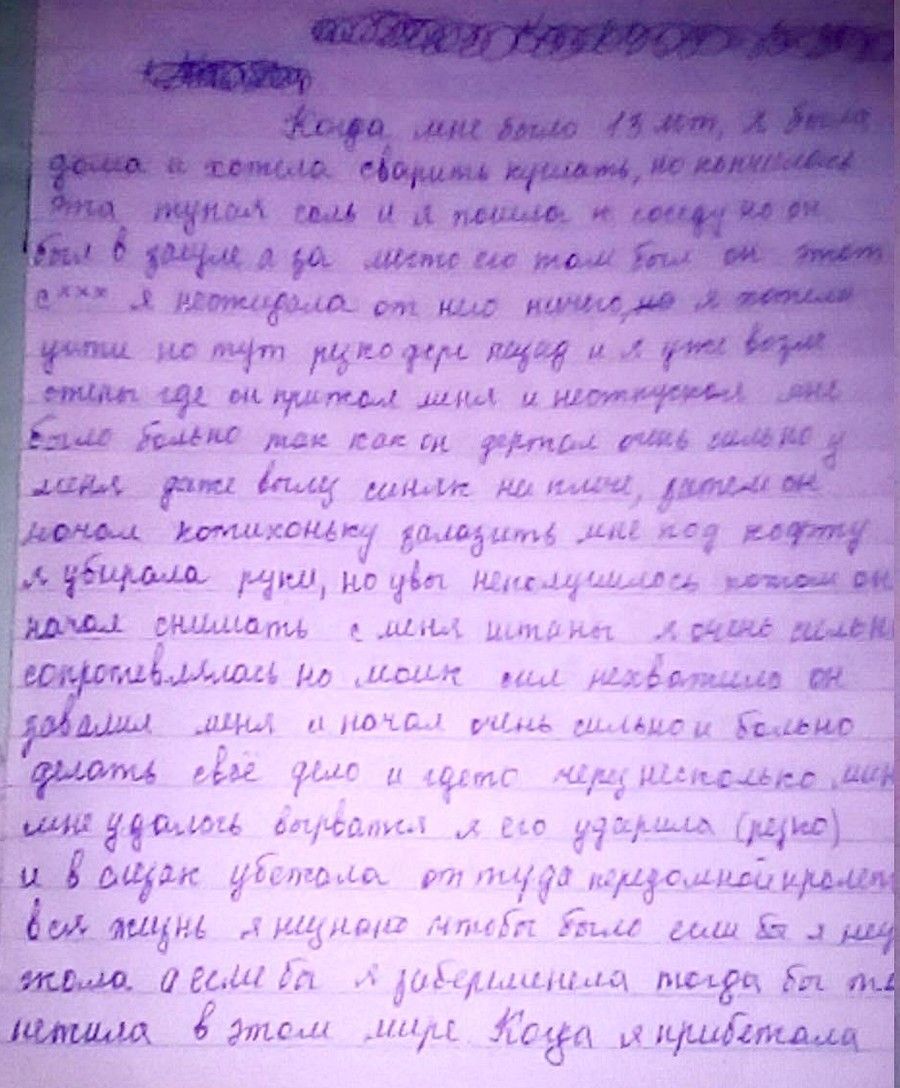 Когда мне было 13 лет, я была
дома и хотела сварить кушать, но кончилась
эта тупая соль и я пошла к соседу но он
был в зашле а за место его там был он этот
с*** я неожидала от него ничего, но я хотела
уйти но тут резко пезад и я уже возле
стены где он прижал меня и неотпускал мне
было больно так как он держал очень сильно у
меня даже вылез синяк на плече, затем он
начал потихоньку залазить мне под кофту
я убирала руки, но увы неполушилось потом он
начал снимать с меня штаны я очень сильн
сопротевлялась но моих сил нехватило он
завалил меня и начал очень сильно и больно
делать своё дело и гдето через несколько мин
мне удалось вырватся я его ударила (резко)
и в слезах убежала от туда передомной пролет
вся жизнь я незнаю чтобы было если бы я неу
жала а если бы я забеременела тогда бы
нежила в этом мире Когда я прибежала